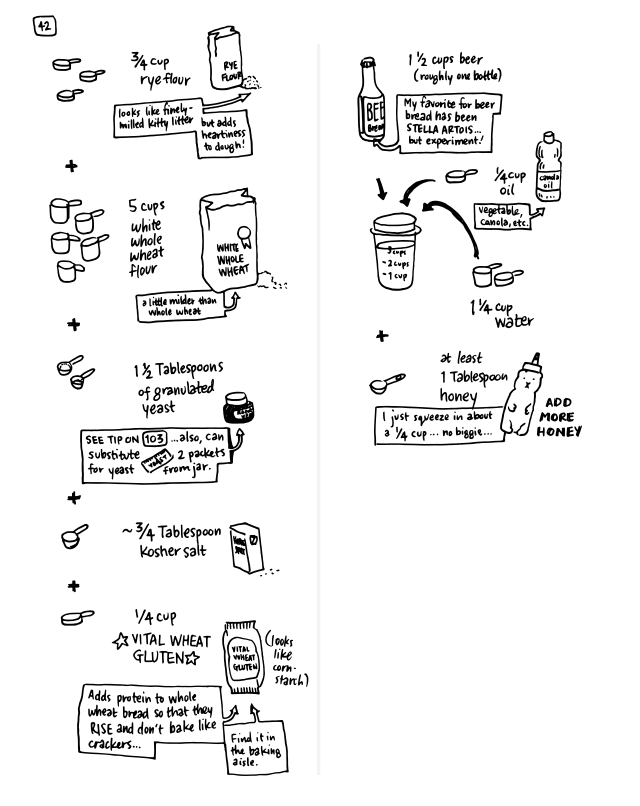 42
3/4 cup
rye flour
RYE
FLOUR
looks like finely-
milled kitty litter
but adds
heartiness
to dough!
+
5 cups
white
whole
wheat
flour
WHITE
WHOLE
WHEAT
a little milder than
whole wheat
+
1 1/2 Tablespoons
of granulated
yeast
SEE TIP ON 103 ...also, can
substitute 2 packets
for yeast YEAST from jar.
+
~3/4 Tablespoon
Kosher salt
+
1/4 cup
☆VITAL WHEAT
GLUTEN☆
VITAL
WHEAT
GLUTEN
(looks
like
corn-
starch)
Adds protein to whole
wheat bread so that they
RISE and don't bake like
crackers...
Find it in
the baking
aisle.
1 1/2 cups beer
(roughly one bottle)
BEE
Bread
My favorite for beer
bread has been
STELLA ARTOIS...
but experiment!
1/4 cup
oil
canola
oil
vegetable,
canola, etc.
3 cups
-2 cups
-1 cup
1 1/4 cup
water
+
at least
1 Tablespoon
honey
I just squeeze in about
a 1/4 cup... no biggie...
ADD
MORE
HONEY